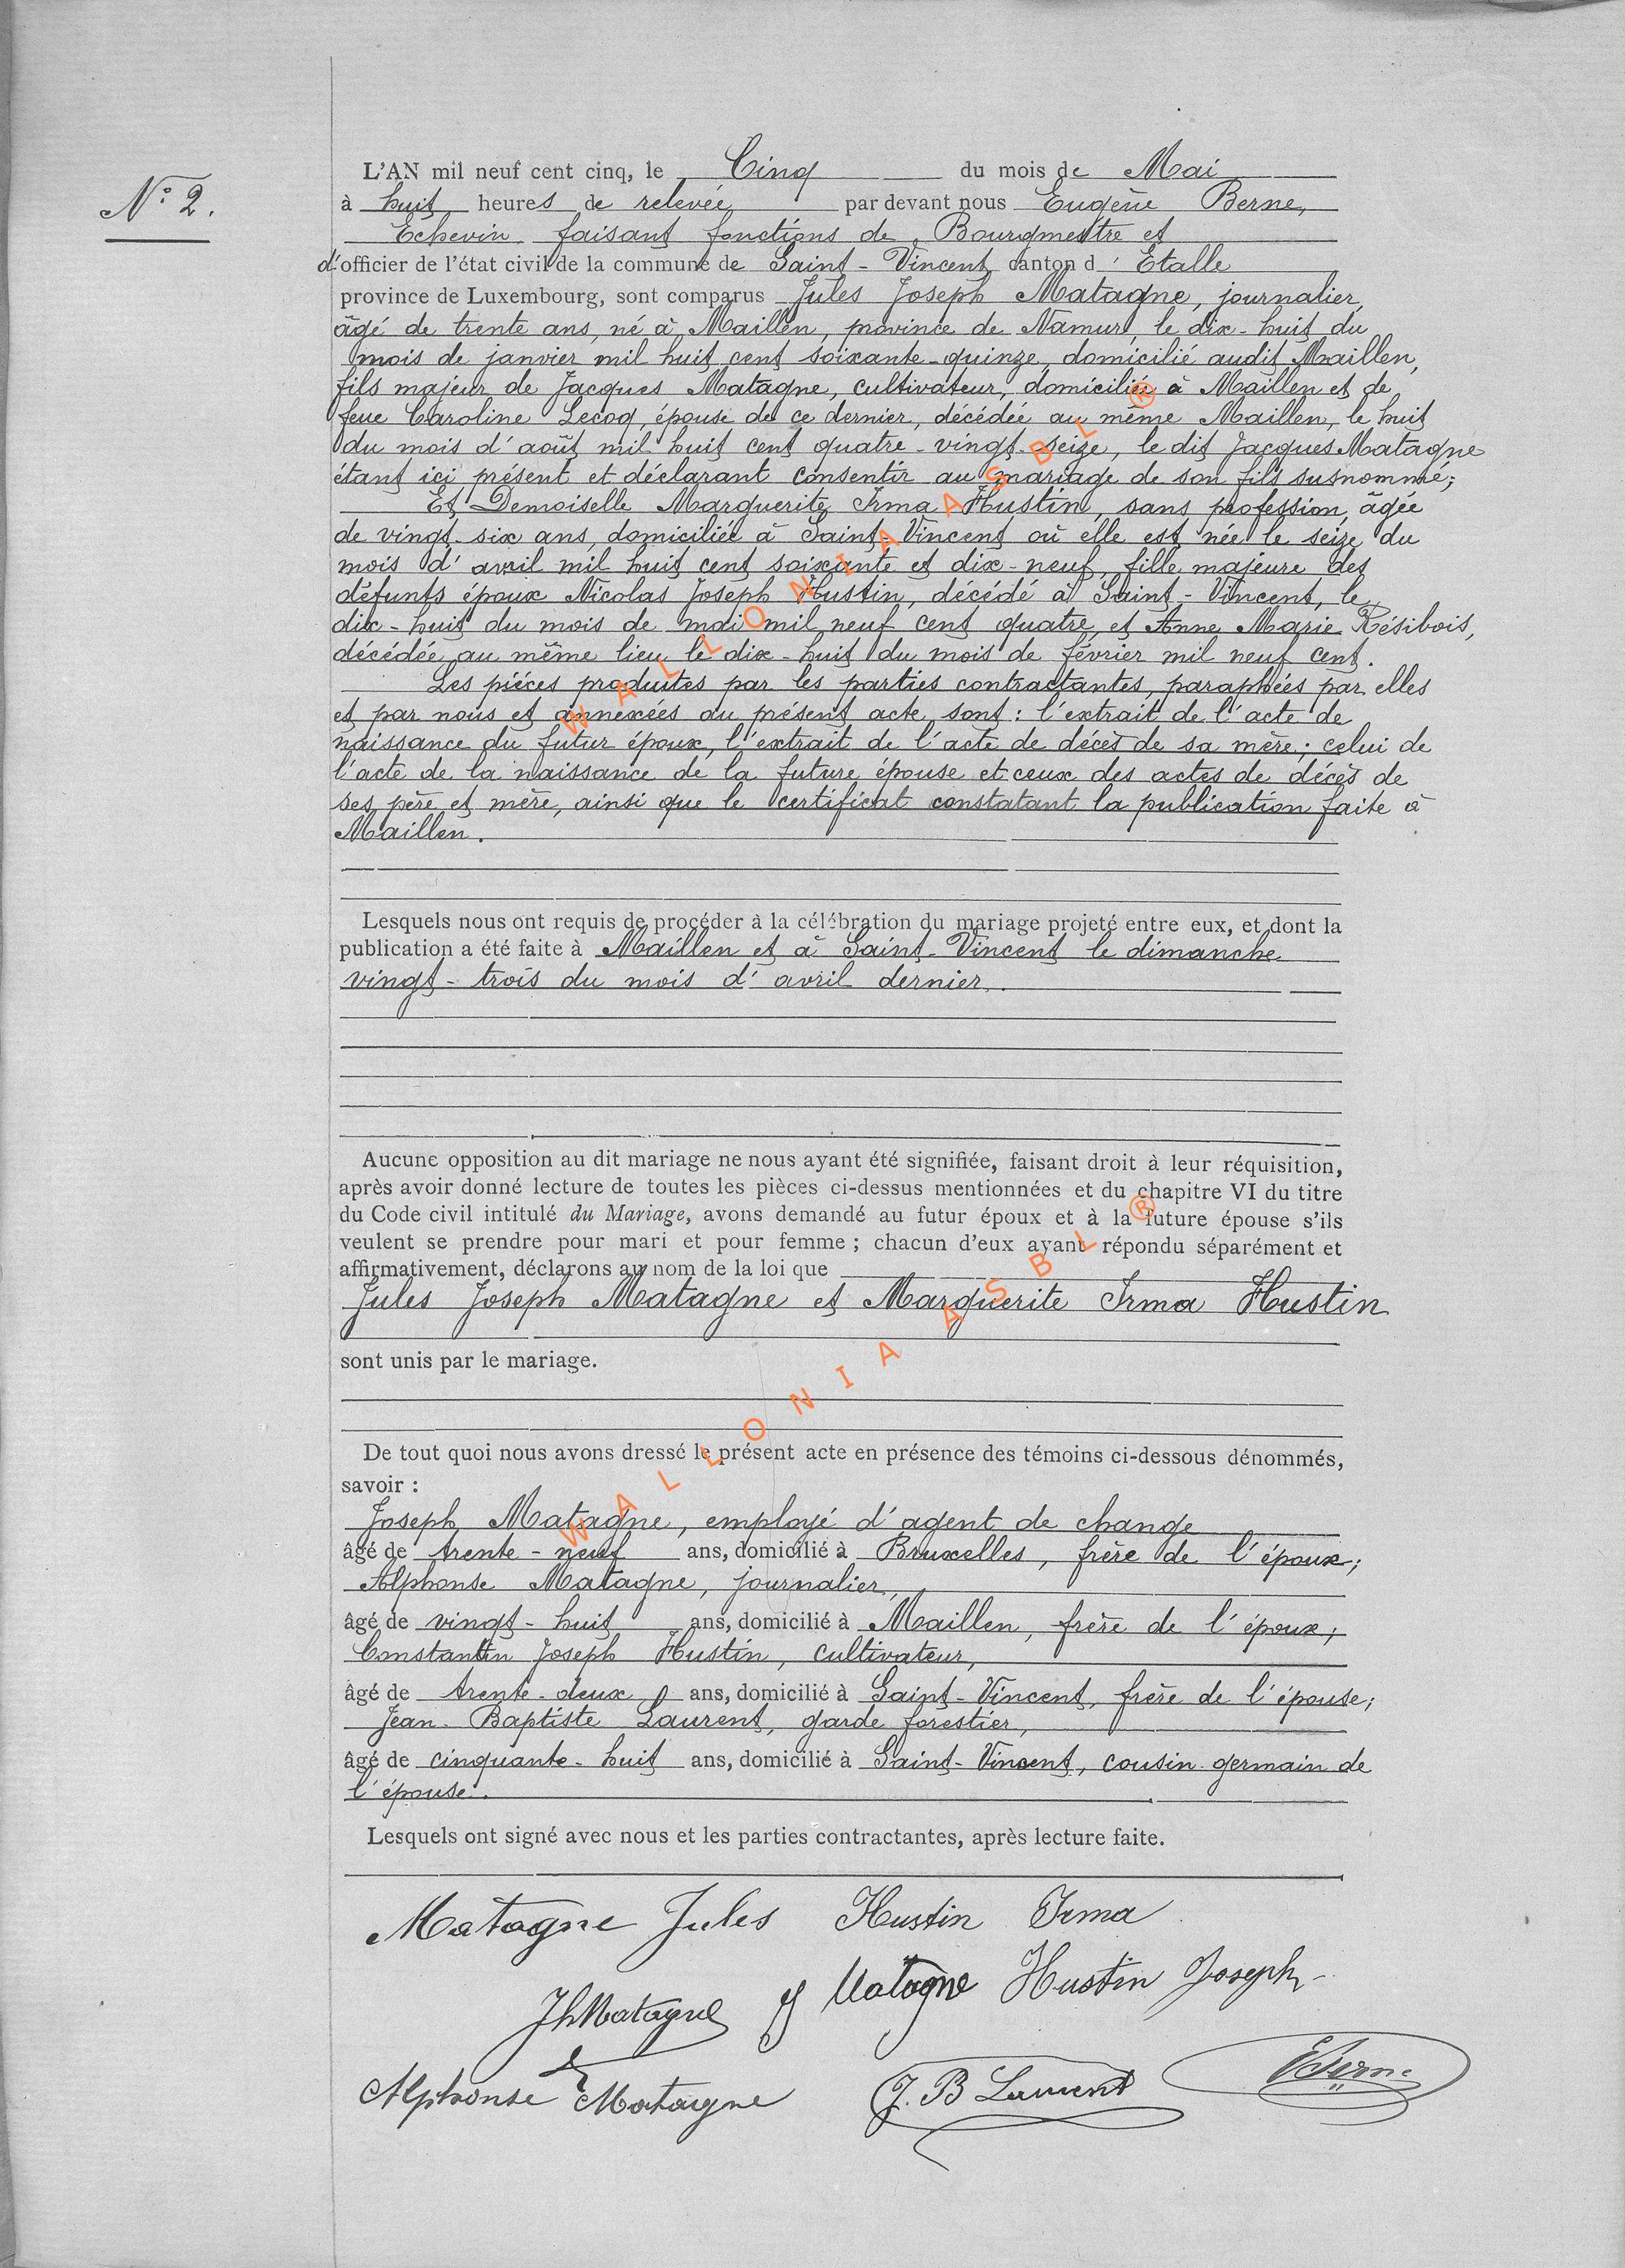 N° 2.
L'AN mil neuf cent cinq, le Cinq du mois de Mai
à huit heures de relevée par devant nous Eugène Berne,
Echevin faisant fonctions de Bourgmestre et
d'officier de l'état civil de la commune de Saint-Vincent canton d'Etalle
province de Luxembourg, sont comparus Jules Joseph Matagne, journalier,
âgé de trente ans, né à Maillen, province de Namur, le dix-huit du
mois de janvier mil huit cent soixante-quinze, domicilié audit Maillen,
fils majeur de Jacques Matagne, cultivateur, domicilié à Maillen et de
feue Caroline Lecoq, épouse de ce dernier, décédée au même Maillen, le huit
du mois d'août mil huit cent quatre-vingt-seize, le dit Jacques Matagne
étant ici présent et déclarant consentir au mariage de son fils susnommé;
Et Demoiselle Marguerite Irma Hustin, sans profession, âgée
de vingt-six ans, domiciliée à Saint-Vincent où elle est née le seize du
mois d'avril mil huit cent soixante et dix-neuf, fille majeure des
défunts époux Nicolas Joseph Hustin, décédé à Saint-Vincent, le
dix-huit du mois de mai mil neuf cent quatre, et Anne Marie Résibois,
décédée au même lieu le dix-huit du mois de février mil neuf cent.
Les pièces produites par les parties contractantes, paraphées par elles
et par nous et annexées au présent acte, sont: l'extrait de l'acte de
naissance du futur époux, l'extrait de l'acte de décès de sa mère; celui de
l'acte de la naissance de la future épouse et ceux des actes de décès de
ses père et mère, ainsi que le certificat constatant la publication faite à
Maillen.
Lesquels nous ont requis de procéder à la célébration du mariage projeté entre eux, et dont la
publication a été faite à Maillen et à Saint-Vincent le dimanche
vingt-trois du mois d'avril dernier.
Aucune opposition au dit mariage ne nous ayant été signifiée, faisant droit à leur réquisition,
après avoir donné lecture de toutes les pièces ci-dessus mentionnées et du chapitre VI du titre
du Code civil intitulé du Mariage, avons demandé au futur époux et à la future épouse s'ils
veulent se prendre pour mari et pour femme ; chacun d'eux ayant répondu séparément et
affirmativement, déclarons au nom de la loi que
Jules Joseph Matagne et Marguerite Irma Hustin
sont unis par le mariage.
De tout quoi nous avons dressé le présent acte en présence des témoins ci-dessous dénommés,
savoir :
Joseph Matagne, employé d'agent de change
âgé de trente-neuf ans, domicilié à Bruxelles, frère de l'époux;
Alphonse Matagne, journalier,
âgé de vingt-huit ans, domicilié à Maillen, frère de l'époux;
Constantin Joseph Hustin, cultivateur,
âgé de trente-deux ans, domicilié à Saint-Vincent, frère de l'épouse;
Jean-Baptiste Laurent, garde forestier,
âgé de cinquante-huit ans, domicilié à Saint-Vincent, cousin germain de
l'épouse.
Lesquels ont signé avec nous et les parties contractantes, après lecture faite.
Matagne Jules Hustin Irma
Jh Matagne J Matagne Hustin Joseph
Alphonse Matagne J. B Laurent EBerne
WALLONIA ASBL ®
WALLONIA ASBL ®